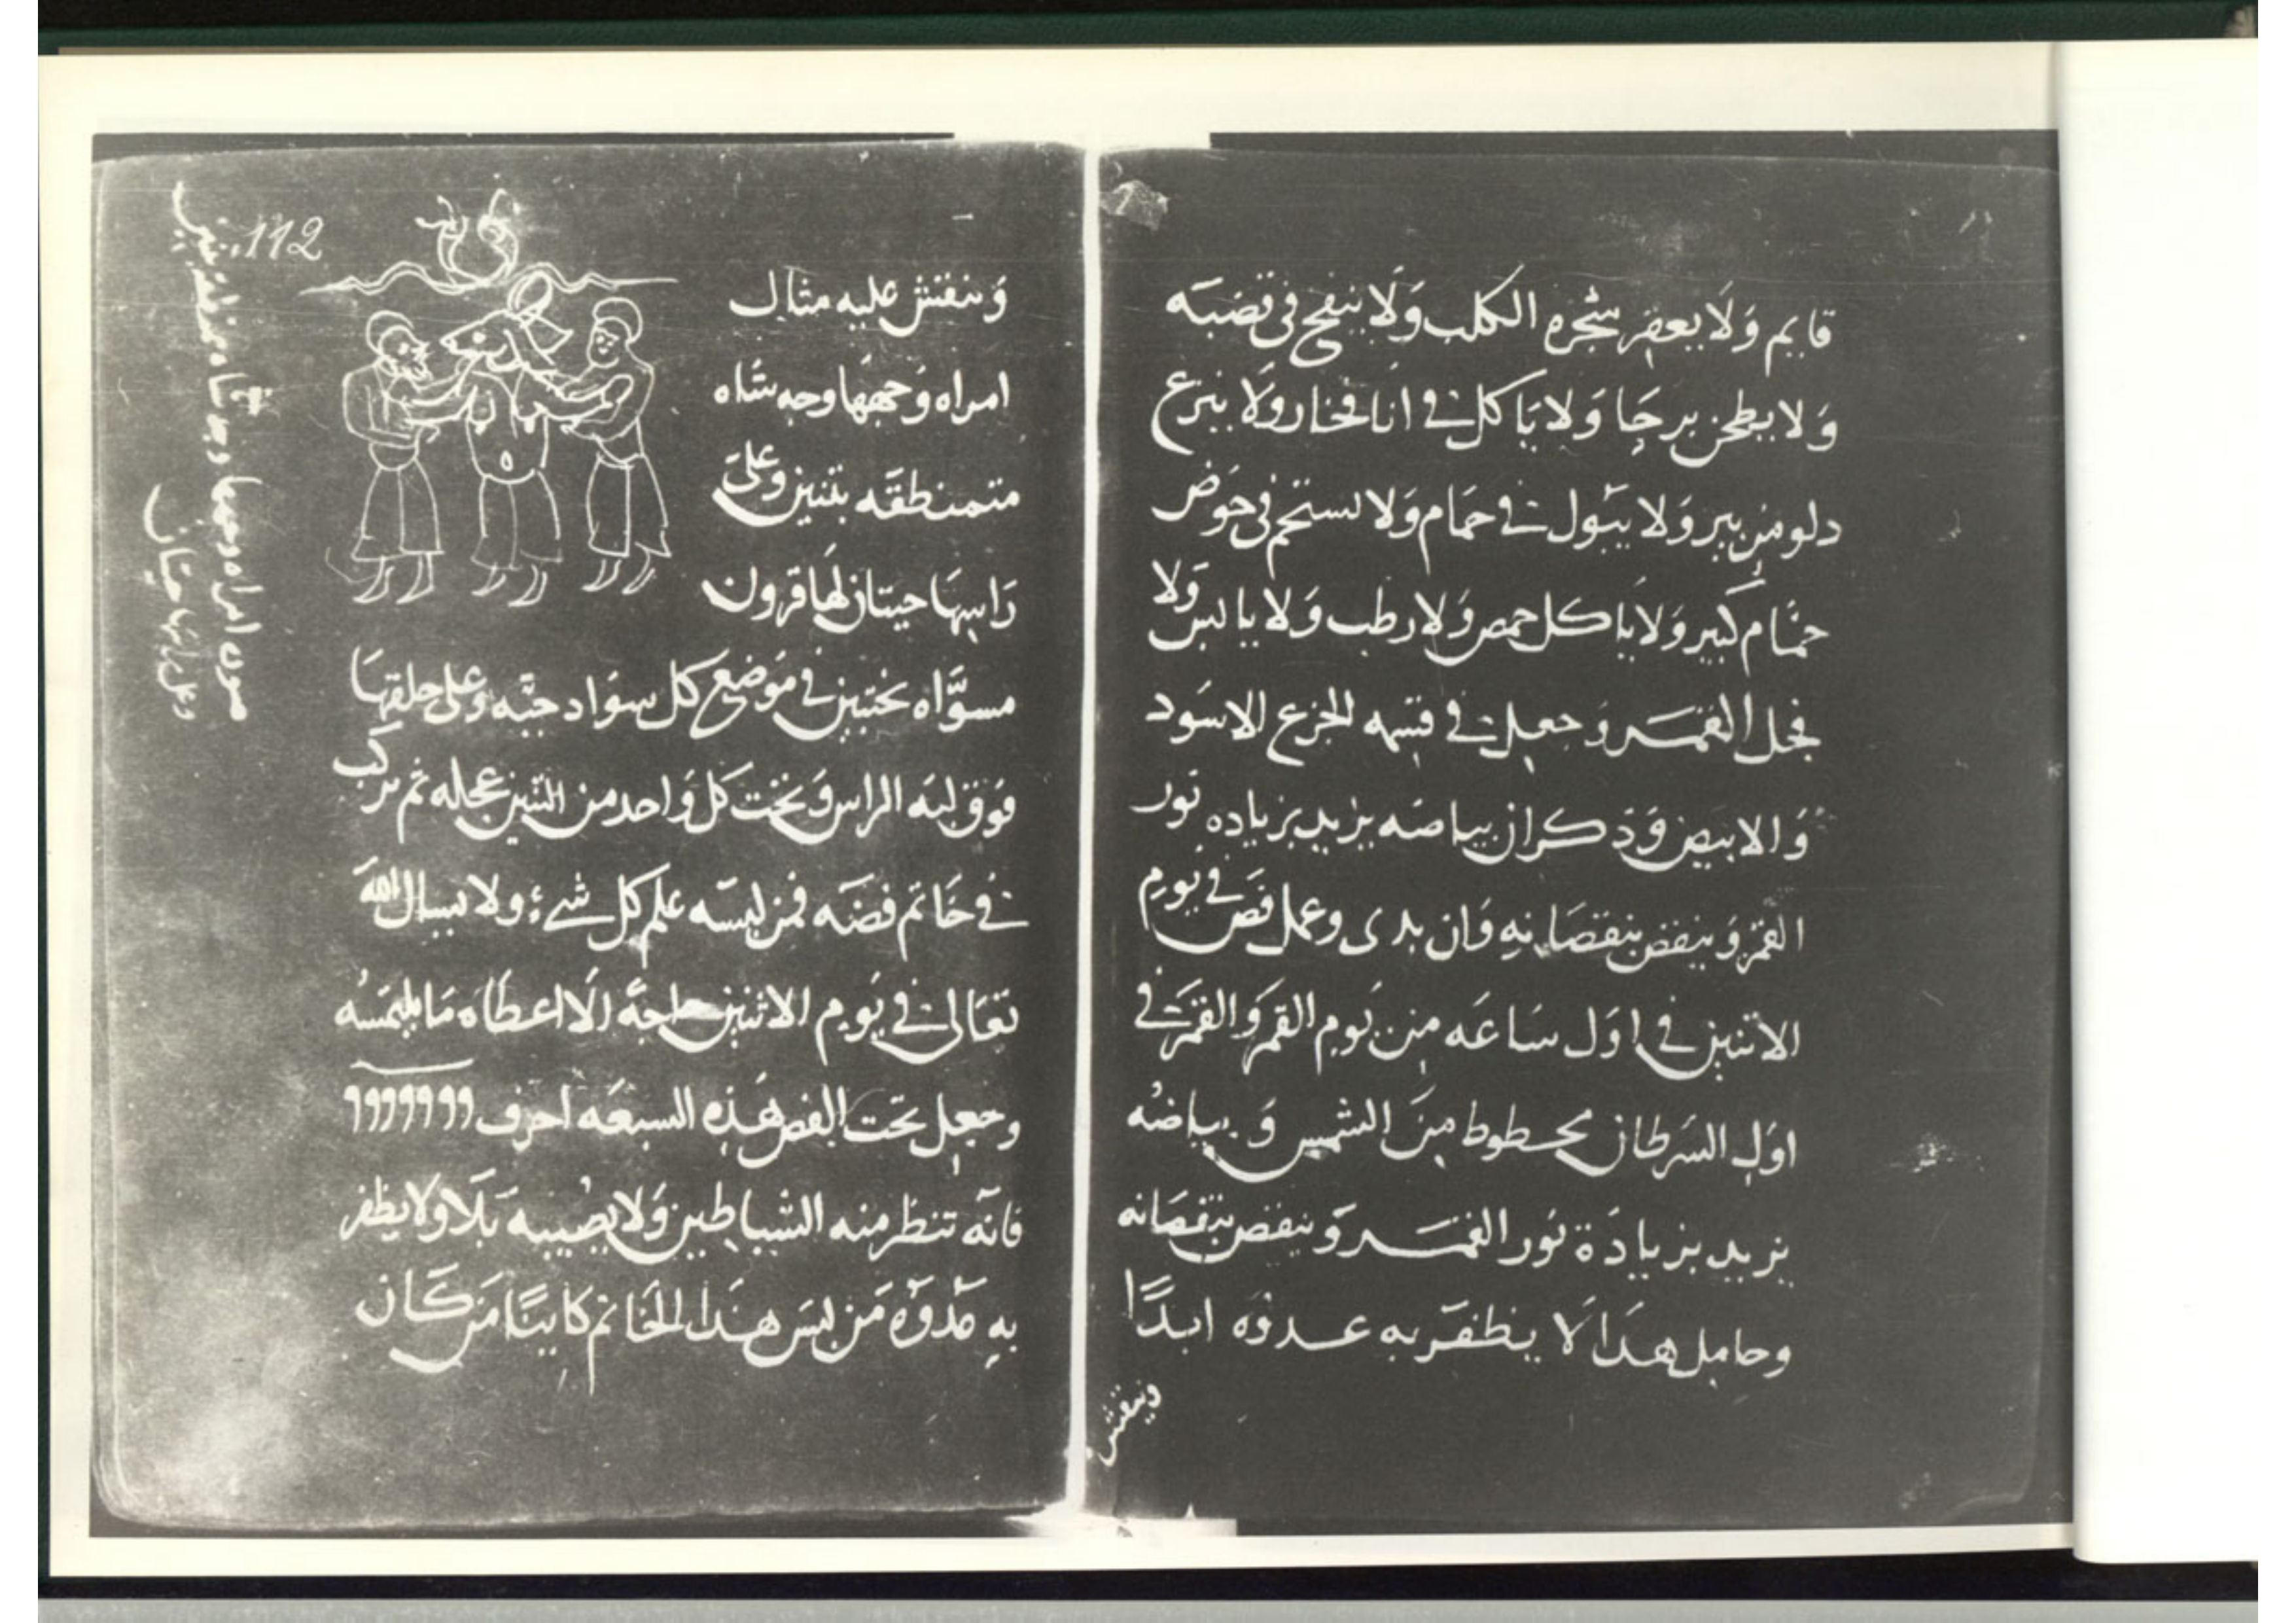 قايم وَلَا يعقر شجره الكلب وَلَا ينفخ في قصَبَه
وَلا يطحن برحَا وَلا يَاكل في انا فخار وَلَا ينزع
دلو من بير وَلا يبَول في حمَام وَلا يستحم في حوَض
حمَّام كَبير وَلَا يَاكل حمص وَلا رطب وَلا يابس وَلا
فجل القمَر وَجعل في قسمه الجزع الاسوَد
وَالابيض وَذكر ان بياضه يزيد بزياده نور
القمَر وَينقص بنقصَانهِ وَان بدى وعمل فصَ في يَوم
الاثنين في اوَل سَاعَه مِن يَوم القمَر وَالقمَر في
اوَل السَرطان محطوط مِنَ الشمس وَبياضُه
يزيد بزيادَة نوُر القمَر وَينقص بنقصَانه
وحامِل هذا لَا يظفَر به عدوَه ابدًا
وينقش
112
وَينقش عليه مثال
امراه وَجهها وجه شاه
متمنطقَه بتنين وَعلىَ
رَاسِهَا حيتان لهَا قرون
مسوَّاه بحنتين في مَوَضع كل سوَاد حبَّه وَعلى حلقهَا
فوَق لبَه الراس وَتحَت كل وَاحد من التنين عجله ثم يركَب
في خَاتم فضَه فمن لبسَه علم كل شيء ولا يسال الله
تعَالى في يَوم الاثنين حاجهً الَا اعطاه مَا يلتمسُه
وجعل تحت الفص هَذِه السبعَه احرف ٩٩٩٩٩٩٩
فانَه تنظر منه الشياطين وَلا يصُيبه بَلَا وَلا يظفر
بهِ عَدوَه مَن لبسَ هذا الخَاتم كاينًا مَن كَان
صورت امراه وجهها وجه شاه متمنطقه بتنين
وعلى راسها حيتان